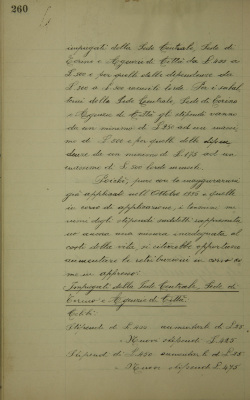 260
impiegati della Sede Centrale, Sede di
Torino e Agenzia di Città da L. 500 a
L. e per quelli delle dipendenze da
L. 500 a L. mensili lorde. Per i subal-
terni della Sede Centrale, Sede di Torino
e Agenzia di Città gli stipendi vanno
da un minimo di L. ad un massi-
mo di L. 500 e per quelli delle dipen-
denze da un minimo di L. 475 ad un
massimo di L. 500 lorde mensili.
Poichè, pure con le maggiorazioni
già applicate nell'Ottobre 1936 e quelle
in corso di applicazione, i
degli stipendi suddetti rappresenta-
no ancora una misura inadeguata al
costo della vita, si riterrebbe opportuno
aumentare le retribuzioni in corso co-
me in appresso:
Impiegati della Sede Centrale, Sede di
Torino e Agenzia di Città
Celibi:
Stipendi di L. 400 aumentarli di L. 25.
Nuovi stipendi L. 425
Stipendi di L. 450 aumentarli di L. 25
Nuovi stipendi L. 475